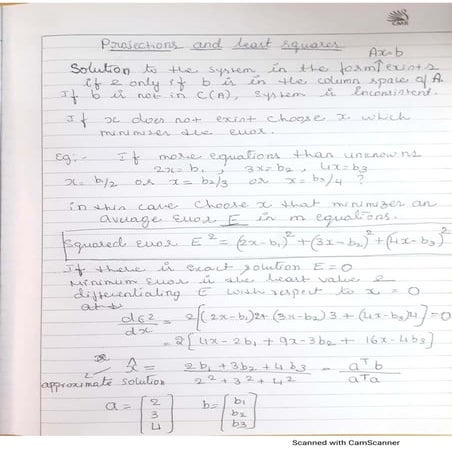 CMR
Projections and least squares
Ax=b
Solution to the system in the form exists
if & only if b is in the column space of A
If b is not in C(A), system is Inconsistent.
If x does not exist choose x which
minimizes the error.
Eg:- If more equations than unknowns
2x=b₁, 3x=b₂, 4x=b₃
x=b₁/2 or x=b₂/3 or x=b₃/4 ?
in this case choose x that minimizes an
average error E in m equations.
Squared error E² = (2x-b₁)² + (3x-b₂)² + (4x-b₃)²
If there is exact solution E=0
Minimum error is the least value &
differentiating E with respect to x = 0
dE²/dx = 2[(2x-b₁)2+(3x-b₂)3+(4x-b₃)4]=0
= 2[4x-2b₁+9x-3b₂+16x-4b₃]
x̂ = (2b₁+3b₂+4b₃)/(2²+3²+4²) = aᵀb/aᵀa
approximate solution
a = [2 3 4] b = [b₁ b₂ b₃]
Scanned with CamScanner